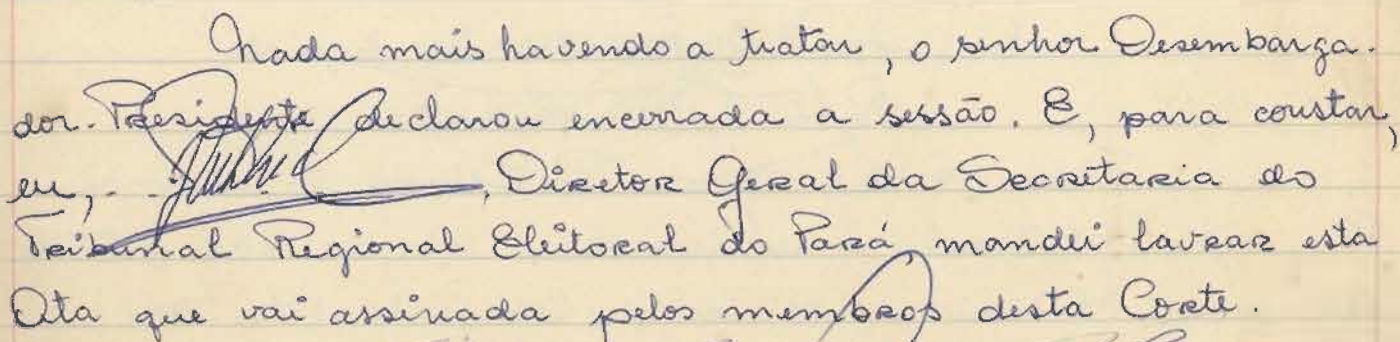 Nada mais havendo a tratar, o senhor Desembarga-
dor-Presidente declarou encerrada a sessão. E, para constar,
eu, , Diretor Geral da Secretaria do
Tribunal Regional Eleitoral do Pará, mandei lavrar esta
Ata que vai assinada pelos membros desta Corte.